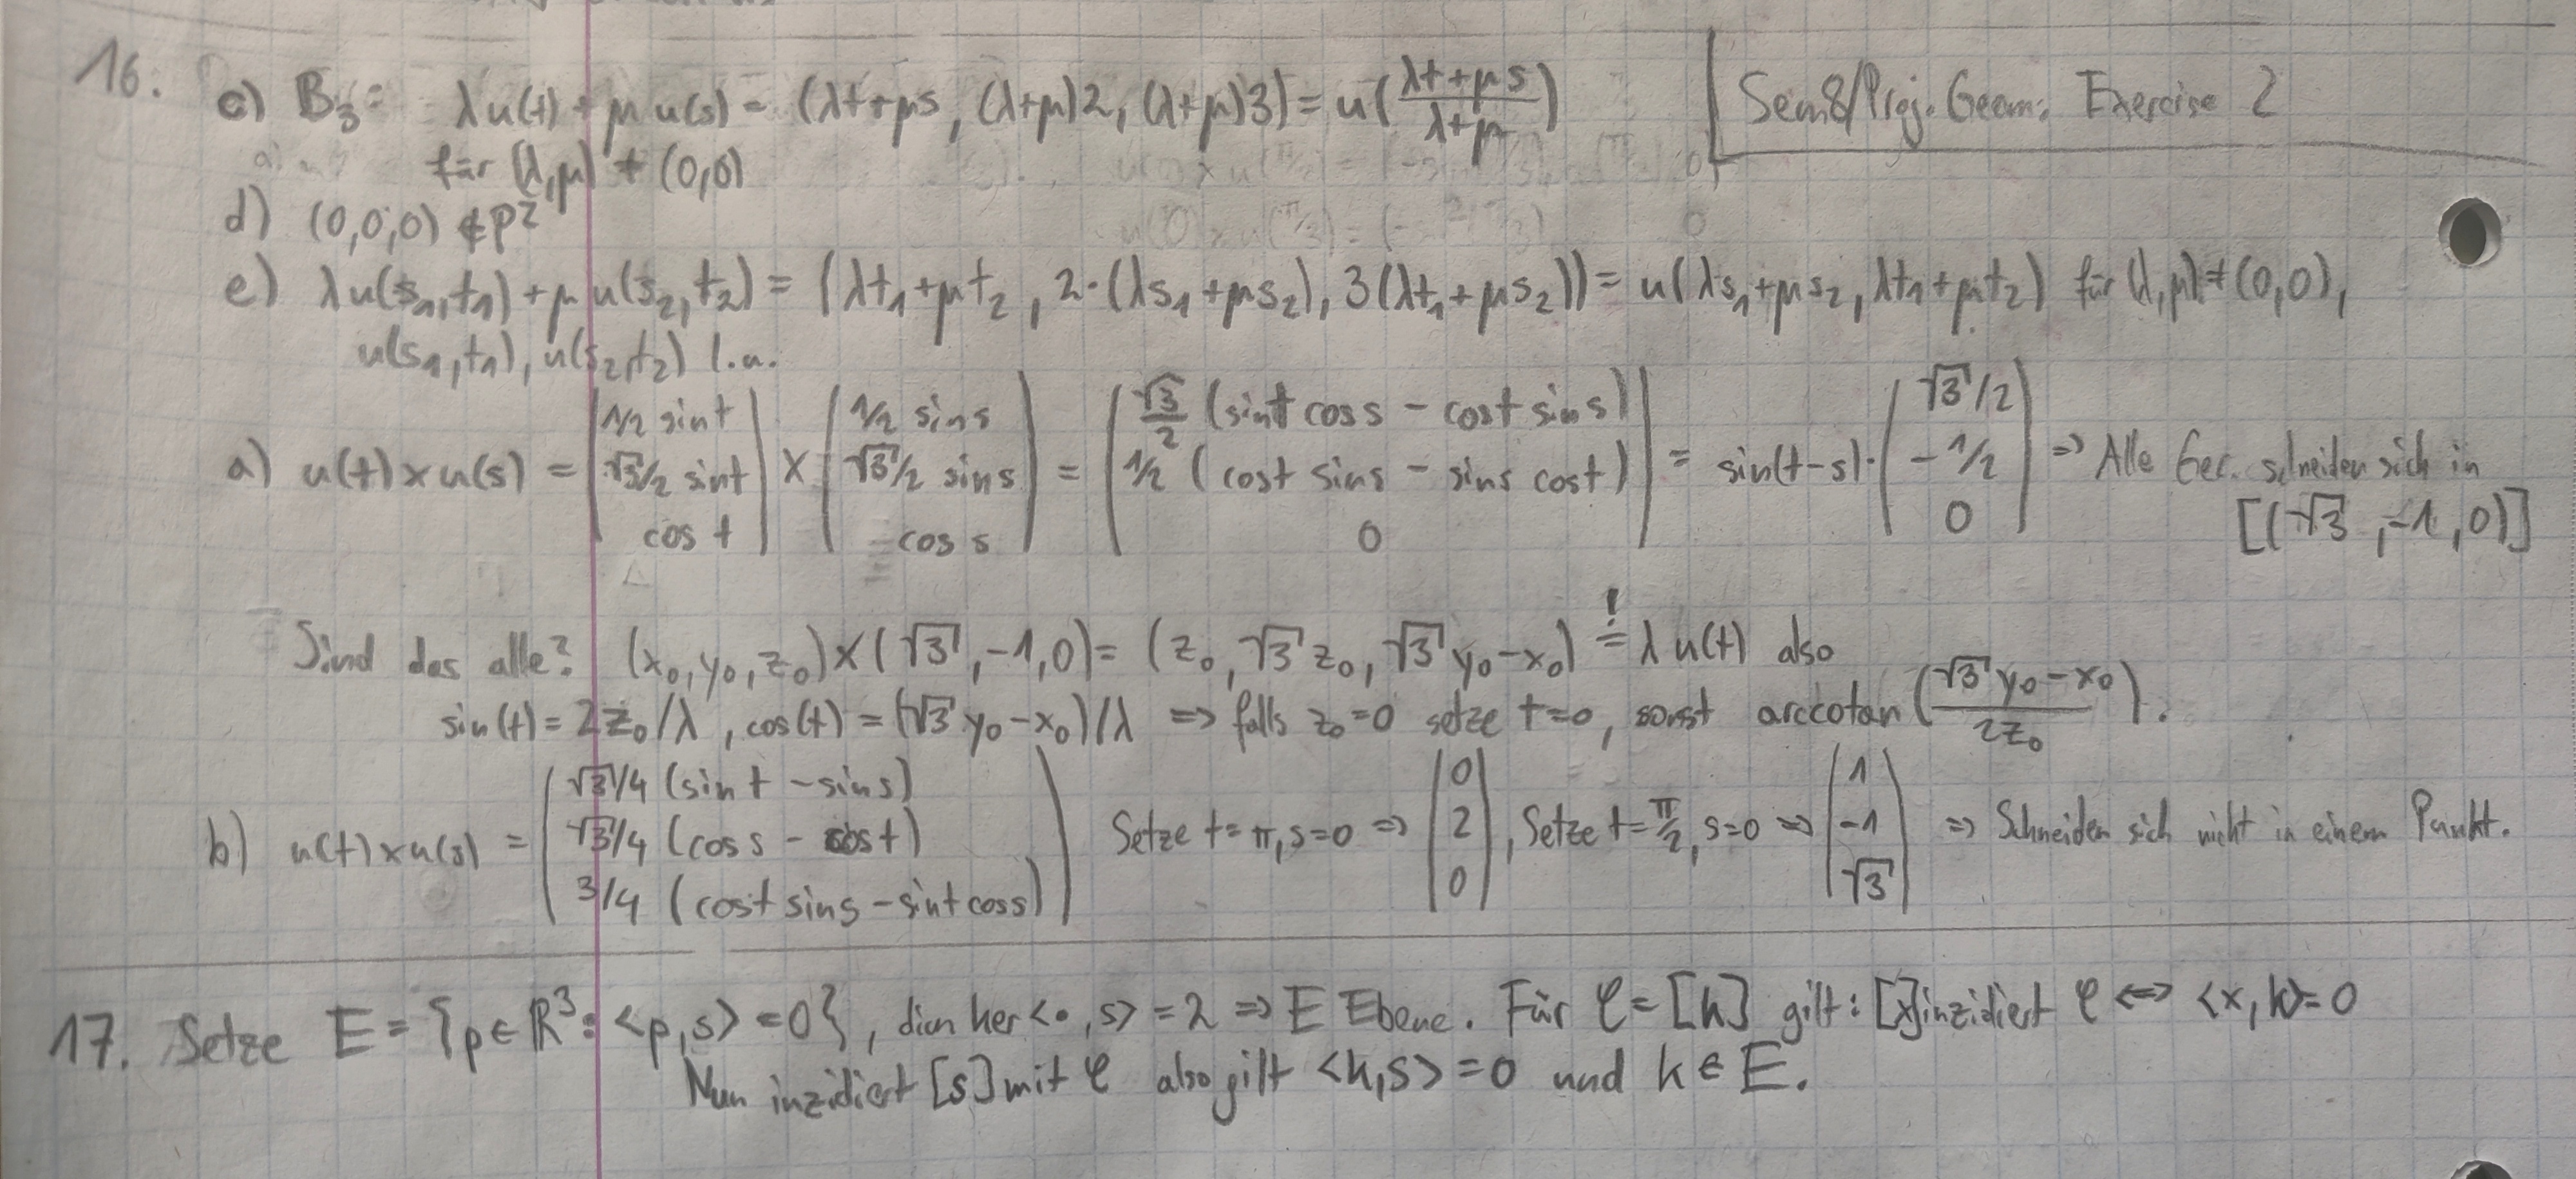 16. c) B₃: λu(t) + μ u(s) = (λt+μs, (λ+μ)2, (λ+μ)3) = u((λt+μs)/(λ+μ))
für (λ,μ) ≠ (0,0)
Sem8/Proj. Geom: Exercise 2
d) (0,0,0) ∉ P²
e) λu(s₁,t₁) + μ u(s₂,t₂) = (λt₁+μt₂, 2·(λs₁+μs₂), 3(λt₁+μs₂)) = u(λs₁+μs₂, λt₁+μt₂) für (λ,μ) ≠ (0,0),
u(s₁,t₁), u(s₂,t₂) l.u.
a) u(t)×u(s) = (1/2 sin t, √3/2 sin t, cos t) × (1/2 sin s, √3/2 sin s, cos s) = (√3/2 (sin t cos s − cos t sin s), 1/2 (cos t sin s − sin s cos t), 0) = sin(t−s)·(√3/2, −1/2, 0) ⇒ Alle Ger. schneiden sich in
[(√3, −1, 0)]
Sind das alle? (x₀,y₀,z₀)×(√3,−1,0) = (z₀, √3 z₀, √3 y₀−x₀) =! λ u(t) also
sin(t) = 2z₀/λ, cos(t) = (√3 y₀−x₀)/λ ⇒ falls z₀=0 setze t=0, sonst arccotan((√3 y₀−x₀)/2z₀).
b) u(t)×u(s) = (√3/4 (sin t − sin s), √3/4 (cos s − cos t), 3/4 (cos t sin s − sin t cos s)) Setze t=π, s=0 ⇒ (0, 2, 0), Setze t=π/2, s=0 ⇒ (1, −1, √3) ⇒ Schneiden sich nicht in einem Punkt.
17. Setze E = {p∈ℝ³: <p,s> = 0}, dim ker<•,s> = 2 ⇒ E Ebene. Für ℓ=[k] gilt: [x] inzidiert ℓ ⇔ <x,k> = 0
Nun inzidiert [s] mit ℓ also gilt <k,s> = 0 und k ∈ E.